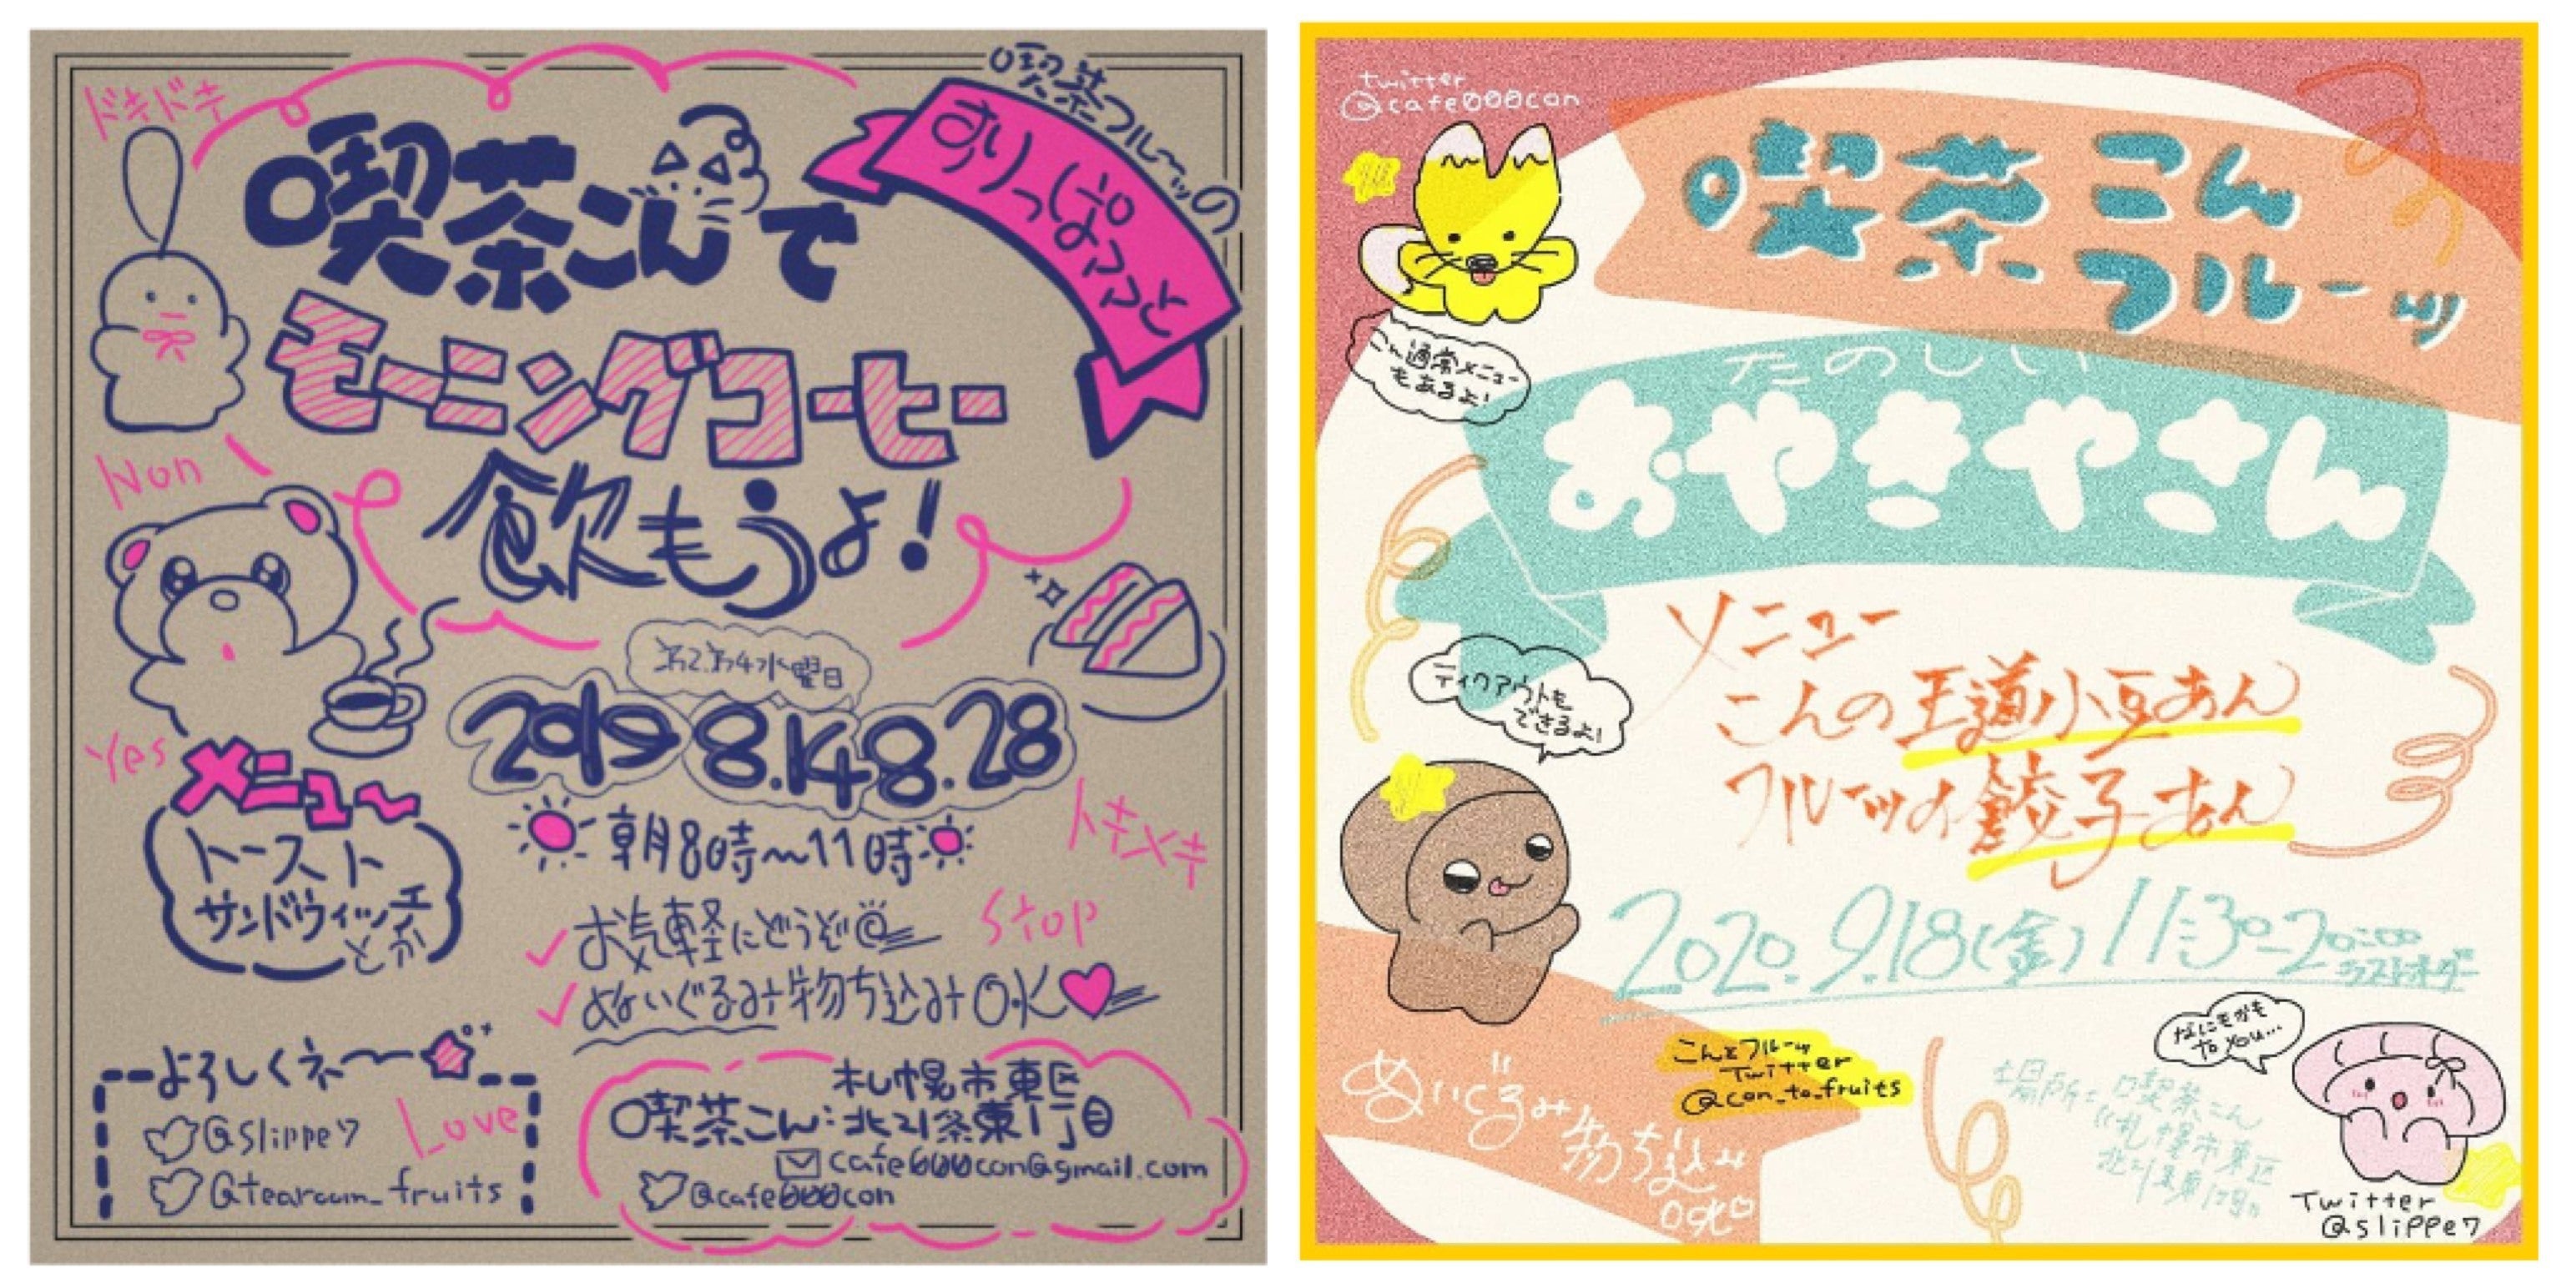 ドキドキ
喫茶フルーツの
すりっぱこと
喫茶こんで
モーニングコーヒー
飲もうよ!
Non
Yes
第2.第4水曜日
2019 8.14 8.28
朝8時〜11時
メニュ〜
トースト
サンドウィッチ
とか
トキメキ
Stop
お気軽にどうぞ
ぬいぐるみ持ち込みOK
よろしくネ〜
@slippe7
Love
@tearoom_fruits
札幌市東区
喫茶こん:北21条東1丁目
cafe000con@gmail.com
@cafe000con
twitter
@cafe000con
喫茶こん
フルーツ
こん通常メニュー
もあるよ!
たのしい
おやきやさん
メニュー
こんの王道小豆あん
フルーツの餃子あん
テイクアウトも
できるよ!
2020.9.18(金)11:30-20:00
ラストオーダー
なにもかも
to you...
こんとフルーツ
Twitter
@con_to_fruits
ぬいぐるみ持ち込み
OK
場所=喫茶こん
札幌市東区
北21条東1丁目
Twitter
@slippe7